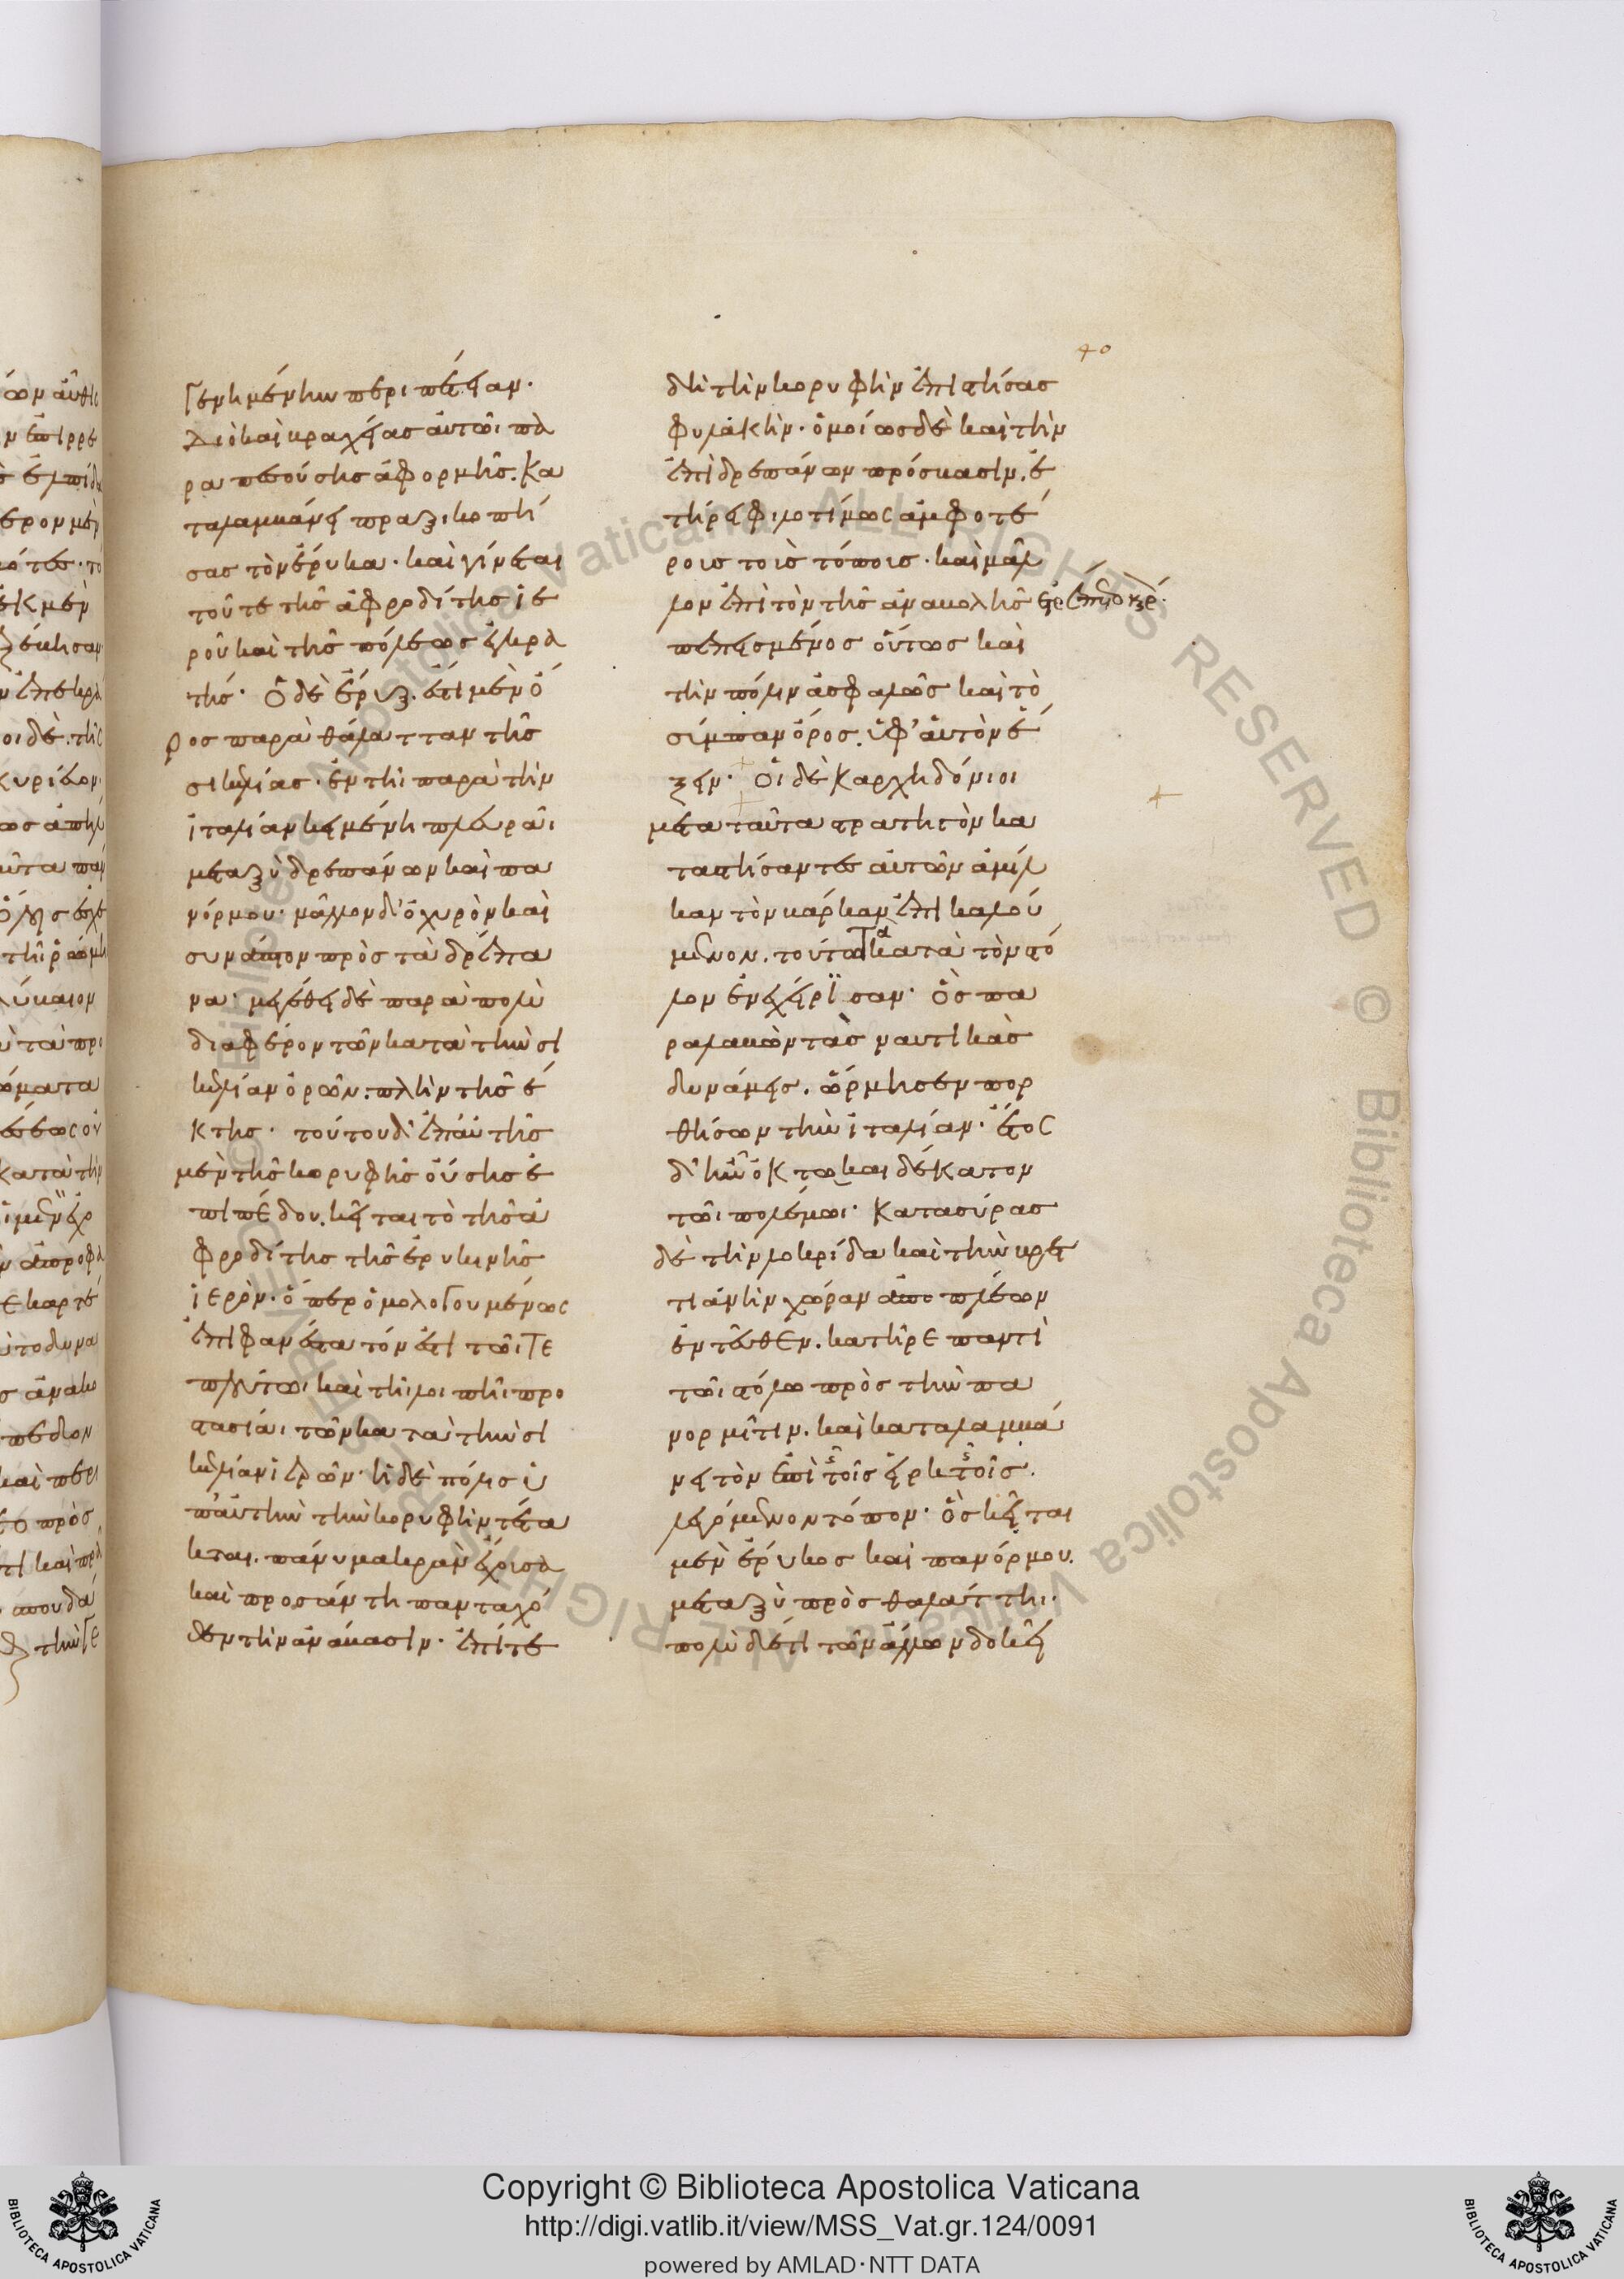 40
γενημένην περιπέτειαν·
Διὸ καὶ βραχείας αὐτῶι πα
ραπεσούσης ἀφορμῆς. Κα
ταλαμβάνει πραξικοπή
σας τὸν ἔρυκα· καὶ γίνεται
τοῦ τε τῆς ἀφροδίτης ἱε
ροῦ καὶ τῆς πόλεως ἐγκρα
τής· Ὁ δὲ ἔρυξ. ἔστι μὲν ὄ
ρος παρὰ θάλατταν τῆς
σικελίας· ἐν τῆι παρὰ τὴν
ἰταλίαν κειμένη πλευρᾶι
μεταξὺ δρεπάνων καὶ πα
νόρμου· μᾶλλον δ' ὀχυρὸν καὶ
συνάπτον πρὸς τὰ δρέπα
να· μεγέθει δὲ παρὰ πολὺ
διαφέρον τῶν κατὰ τὴν σι
κελίαν ὀρῶν. πλὴν τῆς ἔ
κτης· τούτου δ' ἐπ' αὐτῆς
μὲν τῆς κορυφῆς οὔσης ἐ
πιπέδου. κεῖται τὸ τῆς ἀ
φροδίτης τῆς ἐρυκινῆς
ἱερόν· ὅπερ ὁμολογουμένως
ἐπιφανέστατόν ἐστι τῶι τε
πλούτωι καὶ τῆι λοιπῆι προ
στασίαι τῶν κατὰ τὴν σι
κελίαν ἱερῶν· ἡ δὲ πόλις ὑ
π' αὐτὴν τὴν κορυφὴν τέτα
κται. πάνυ μακρὰν ἔχουσα
καὶ προσάντη πανταχό
θεν τὴν ἀνάβασιν· ἐπί τε
δὴ τὴν κορυφὴν ἐπιστήσας
φυλακὴν· ὁμοίως δὲ καὶ τὴν
ἐπὶ δρεπάνων πρόσβασιν. ἐ
τήρει φιλοτίμως ἀμφοτέ
ροις τοῖς τόποις· καὶ μᾶλ
λον ἐπὶ τὸν τῆς ἀναβολῆς
πεπεισμένος οὕτως καὶ
τὴν πόλιν ἀσφαλῶς καὶ τὸ
σύμπαν ὄρος. ὑφ' αὑτὸν ἕ
ξειν· Οἱ δὲ καρχηδόνιοι
μετὰ ταῦτα στρατηγὸν κα
ταστήσαντες αὐτῶν ἀμίλ
καν τὸν βάρκαν ἐπικαλού
μενον. τούτω τὰ κατὰ τὸν στό
λον ἐνεχείρισαν· ὃς πα
ραλαβὼν τὰς ναυτικὰς
δυνάμεις. ὥρμησεν πορ
θήσων τὴν ἰταλίαν· ἔτος
δ' ἦν ὀκτωκαιδέκατον
τῶι πολέμωι· Κατασύρας
δὲ τὴν λοκρίδα καὶ τὴν βρετ
τιανὴν χώραν ἀποπλέων
ἐντεῦθεν. κατῆρε παντὶ
τῶι στόλω πρὸς τὴν πα
νορμῖτιν. καὶ καταλαμβά
νει τὸν ἐπὶ τοῖς εἱρκτοῖς
λεγόμενον τόπον· ὃς κεῖται
μὲν ἔρυκος καὶ πανόρμου.
μεταξὺ πρὸς θαλάττηι·
πολὺ δέ τι τῶν ἄλλων δοκεῖ
Copyright © Biblioteca Apostolica Vaticana
http://digi.vatlib.it/view/MSS_Vat.gr.124/0091
powered by AMLAD·NTT DATA